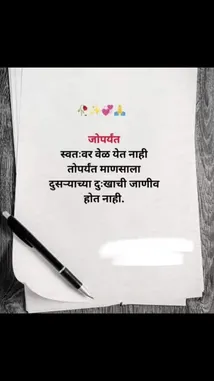 जोपर्यंत
स्वतःवर वेळ येत नाही
तोपर्यंत माणसाला
दुसऱ्याच्या दुःखाची जाणीव
होत नाही.